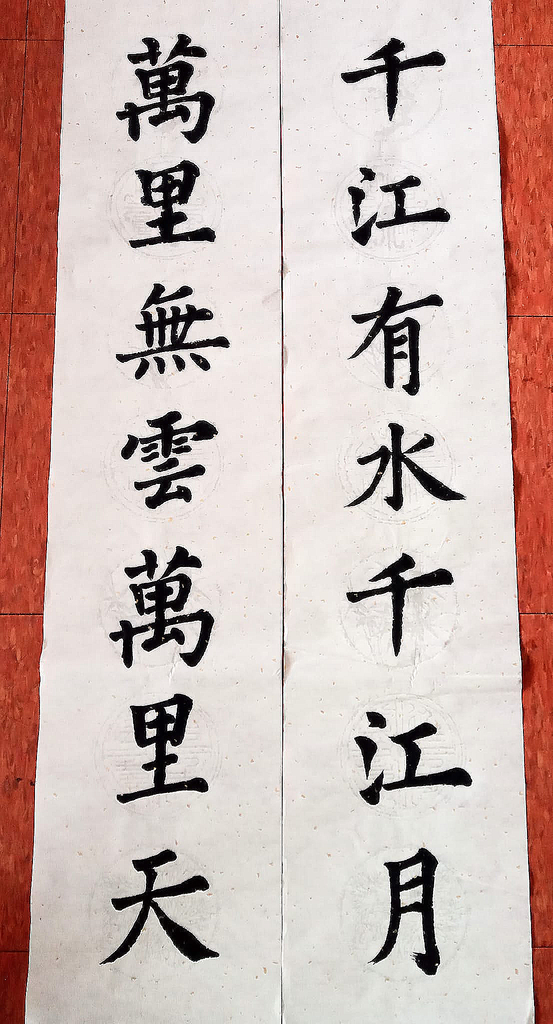 千江有水千江月
萬里無雲萬里天